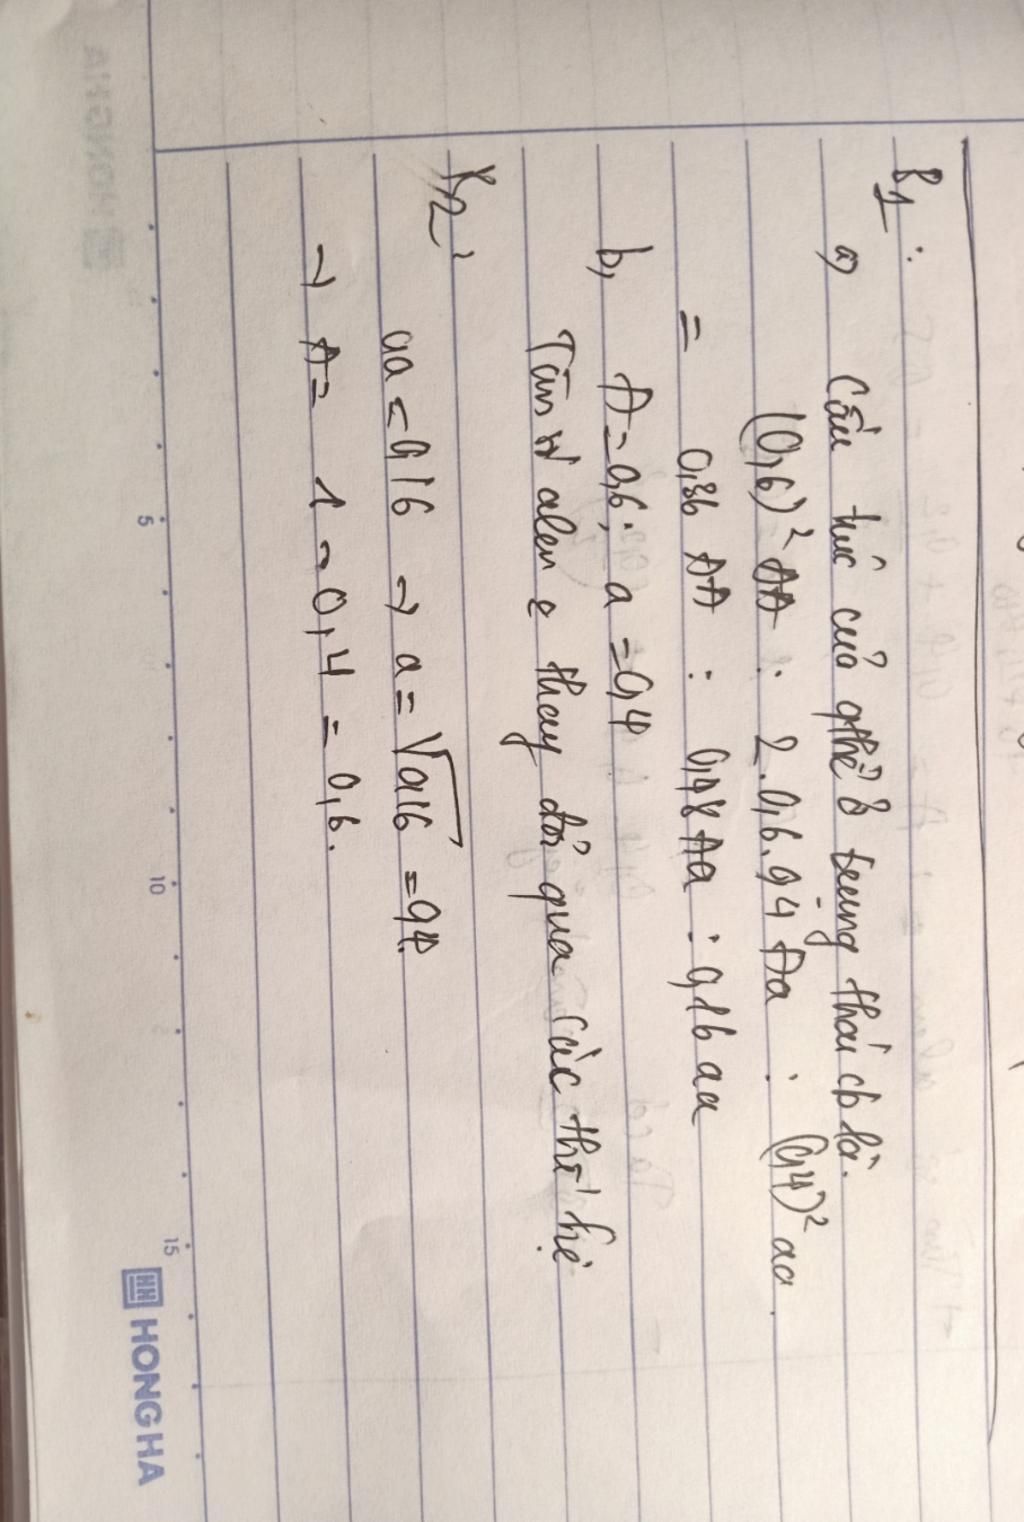 B1:
a) Cấu trúc của qthể ở trạng thái cb là.
(0,6)² AA : 2.0,6.0,4 Aa : (0,4)² aa.
= 0,36 AA : 0,48 Aa : 0,16 aa
b, A = 0,6; a = 0,4
Tần số alen o thay đổi qua các thế hệ
B2:
aa = 0,16 → a = √0,16 = 0,4.
→ A = 1 - 0,4 = 0,6.
5 10 15
HONG HA